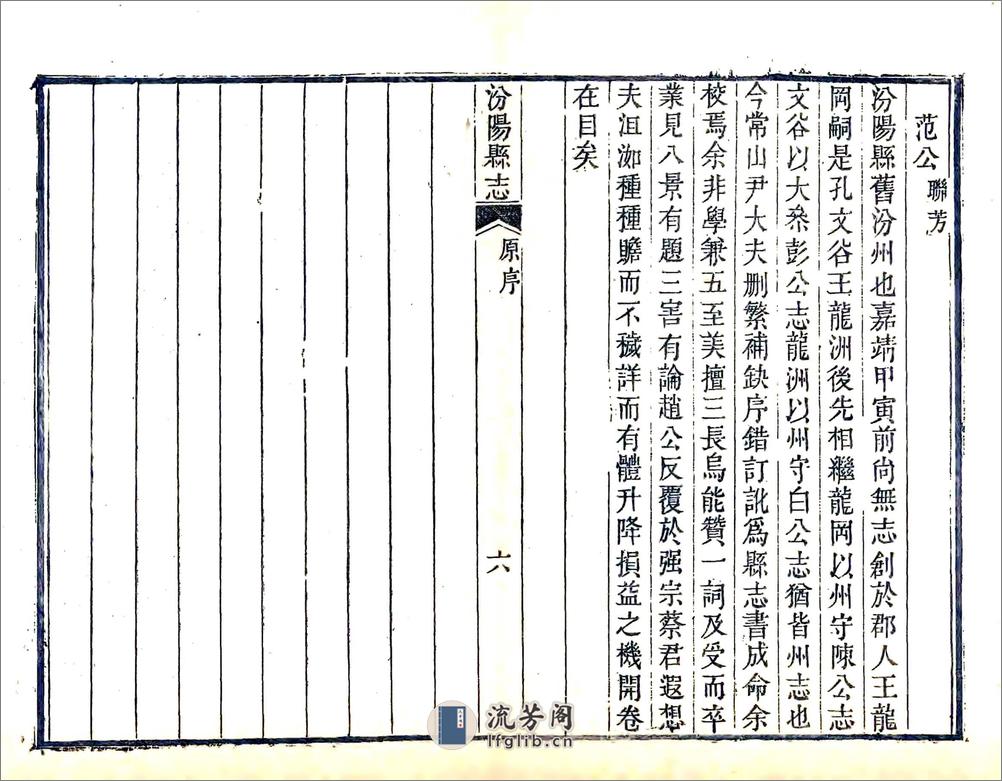 范公聯芳
汾陽縣舊汾州也嘉靖甲寅前尙無志創於郡人王龍
岡嗣是孔文谷王龍洲後先相繼龍岡以州守陳公志
文谷以大叅彭公志龍洲以州守白公志猶皆州志也
今常山尹大夫删繁補缺序錯訂訛爲縣志書成命余
校焉余非學兼五至美擅三長烏能贊一詞及受而卒
業見八景有題三害有論趙公反覆於强宗蔡君遐想
夫沮洳種種贍而不穢詳而有體升降損益之機開卷
在目矣
汾陽縣志
原序
六
流芳阁
lfglib.cn